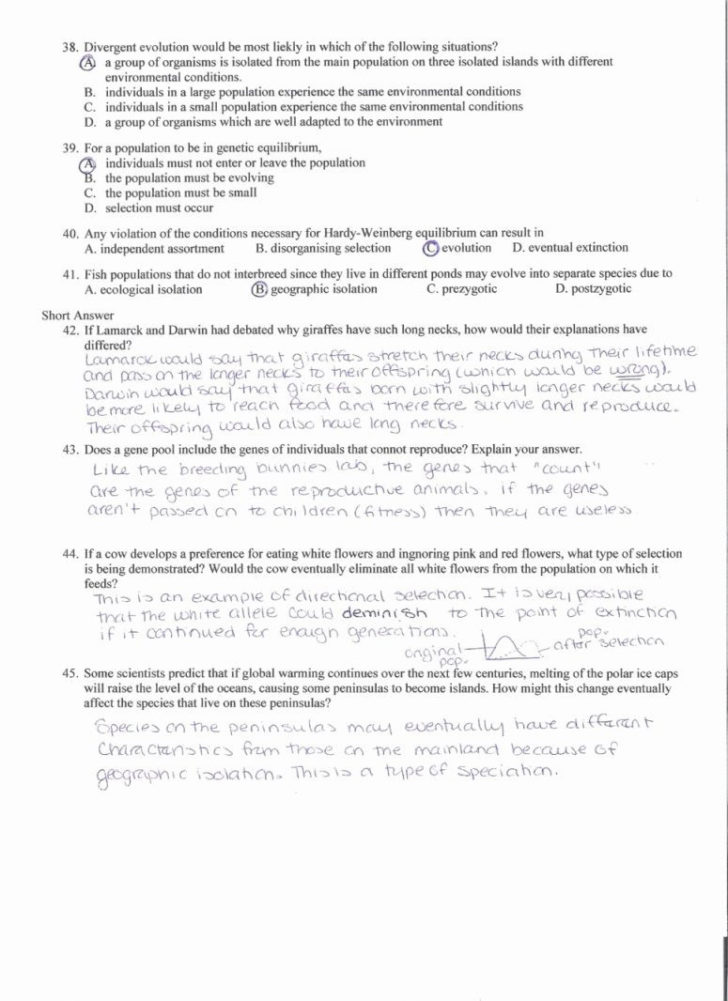 38. Divergent evolution would be most liekly in which of the following situations?
A. a group of organisms is isolated from the main population on three isolated islands with different
environmental conditions.
B. individuals in a large population experience the same environmental conditions
C. individuals in a small population experience the same environmental conditions
D. a group of organisms which are well adapted to the environment
39. For a population to be in genetic equilibrium,
A. individuals must not enter or leave the population
B. the population must be evolving
C. the population must be small
D. selection must occur
40. Any violation of the conditions necessary for Hardy-Weinberg equilibrium can result in
A. independent assortment B. disorganising selection C evolution D. eventual extinction
41. Fish populations that do not interbreed since they live in different ponds may evolve into separate species due to
A. ecological isolation B. geographic isolation C. prezygotic D. postzygotic
Short Answer
42. If Lamarck and Darwin had debated why giraffes have such long necks, how would their explanations have
differed?
Lamarck would say that giraffes stretch their necks during their lifetime
and pass on the longer necks to their offspring (which would be wrong).
Darwin would say that giraffes born with slightly longer necks would
be more likely to reach food and therefore survive and reproduce.
Their offspring would also have long necks.
43. Does a gene pool include the genes of individuals that connot reproduce? Explain your answer.
Like the breeding bunnies lab, the genes that "count"
are the genes of the reproductive animals. if the genes
aren't passed on to children (fitness) then they are useless
44. If a cow develops a preference for eating white flowers and ingnoring pink and red flowers, what type of selection
is being demonstrated? Would the cow eventually eliminate all white flowers from the population on which it
feeds?
This is an example of directional selection. It is very possible
that the white allele could deminish to the point of extinction
if it continued for enough generations.
original pop.
pop. after selection
45. Some scientists predict that if global warming continues over the next few centuries, melting of the polar ice caps
will raise the level of the oceans, causing some peninsulas to become islands. How might this change eventually
affect the species that live on these peninsulas?
Species on the peninsulas may eventually have different
characteristics from those on the mainland because of
geographic isolation. This is a type of speciation.